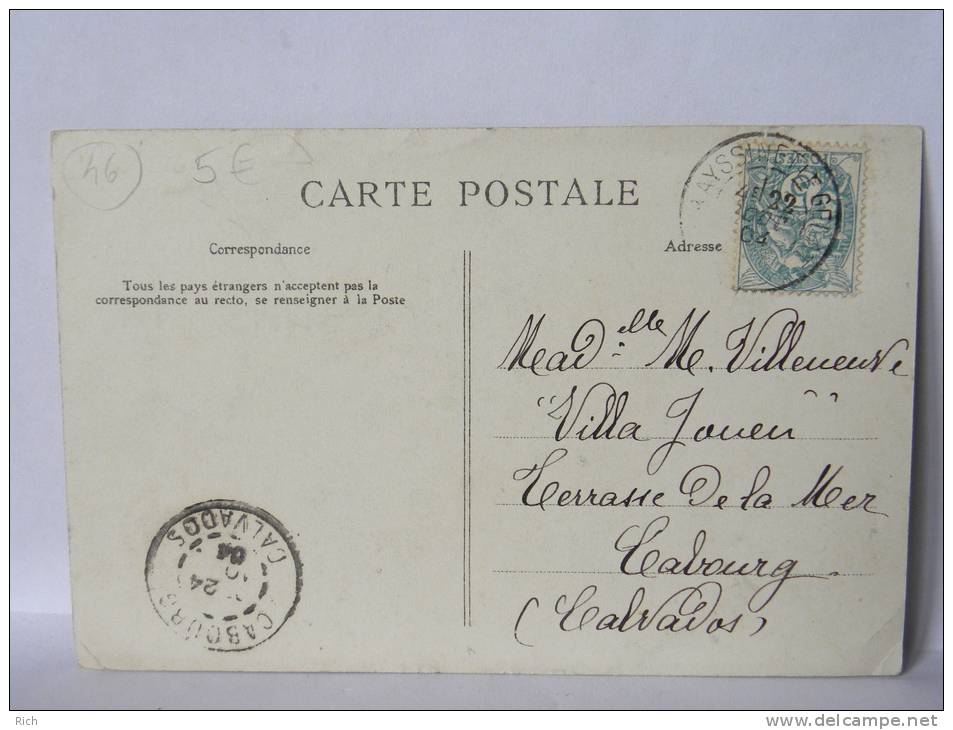 46
5€
CARTE POSTALE
Correspondance
Adresse
Tous les pays étrangers n'acceptent pas la
correspondance au recto, se renseigner à la Poste
22
04
POSTES
Mad elle M. Villeneuve
"Villa Jouen"
Terrasse De la Mer
Cabourg
(Calvados)
CABOURG
24
04
CALVADOS
Rich
www.delcampe.net